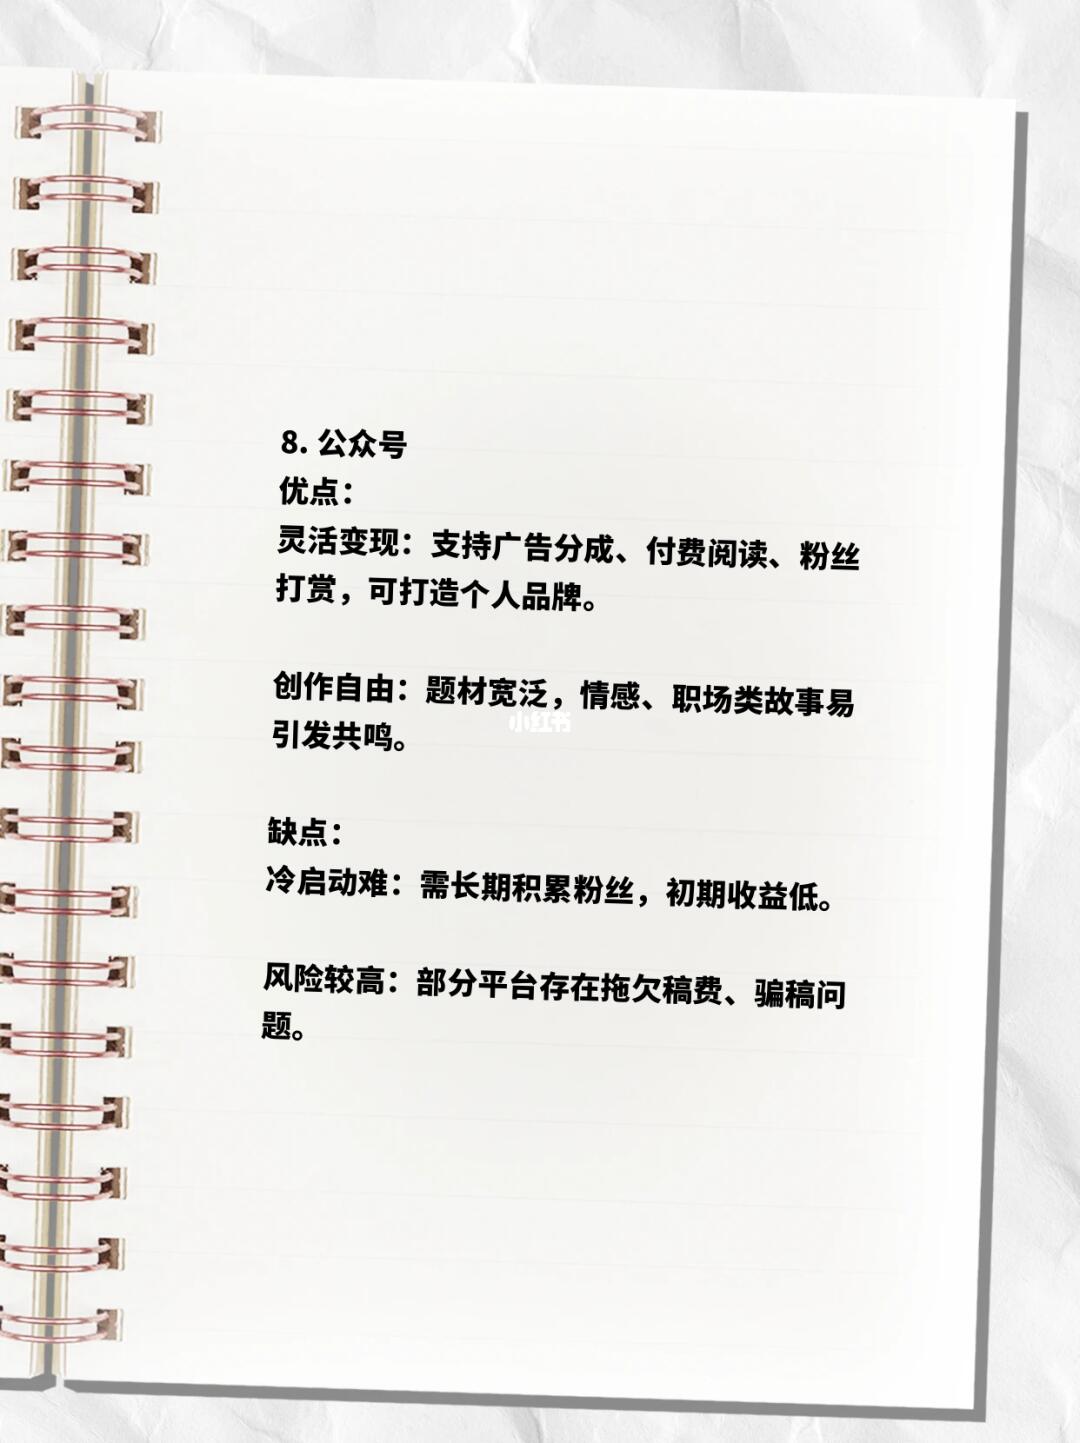 8. 公众号
优点：
灵活变现：支持广告分成、付费阅读、粉丝
打赏，可打造个人品牌。
创作自由：题材宽泛，情感、职场类故事易
引发共鸣。
小红书
缺点：
冷启动难：需长期积累粉丝，初期收益低。
风险较高：部分平台存在拖欠稿费、骗稿问
题。